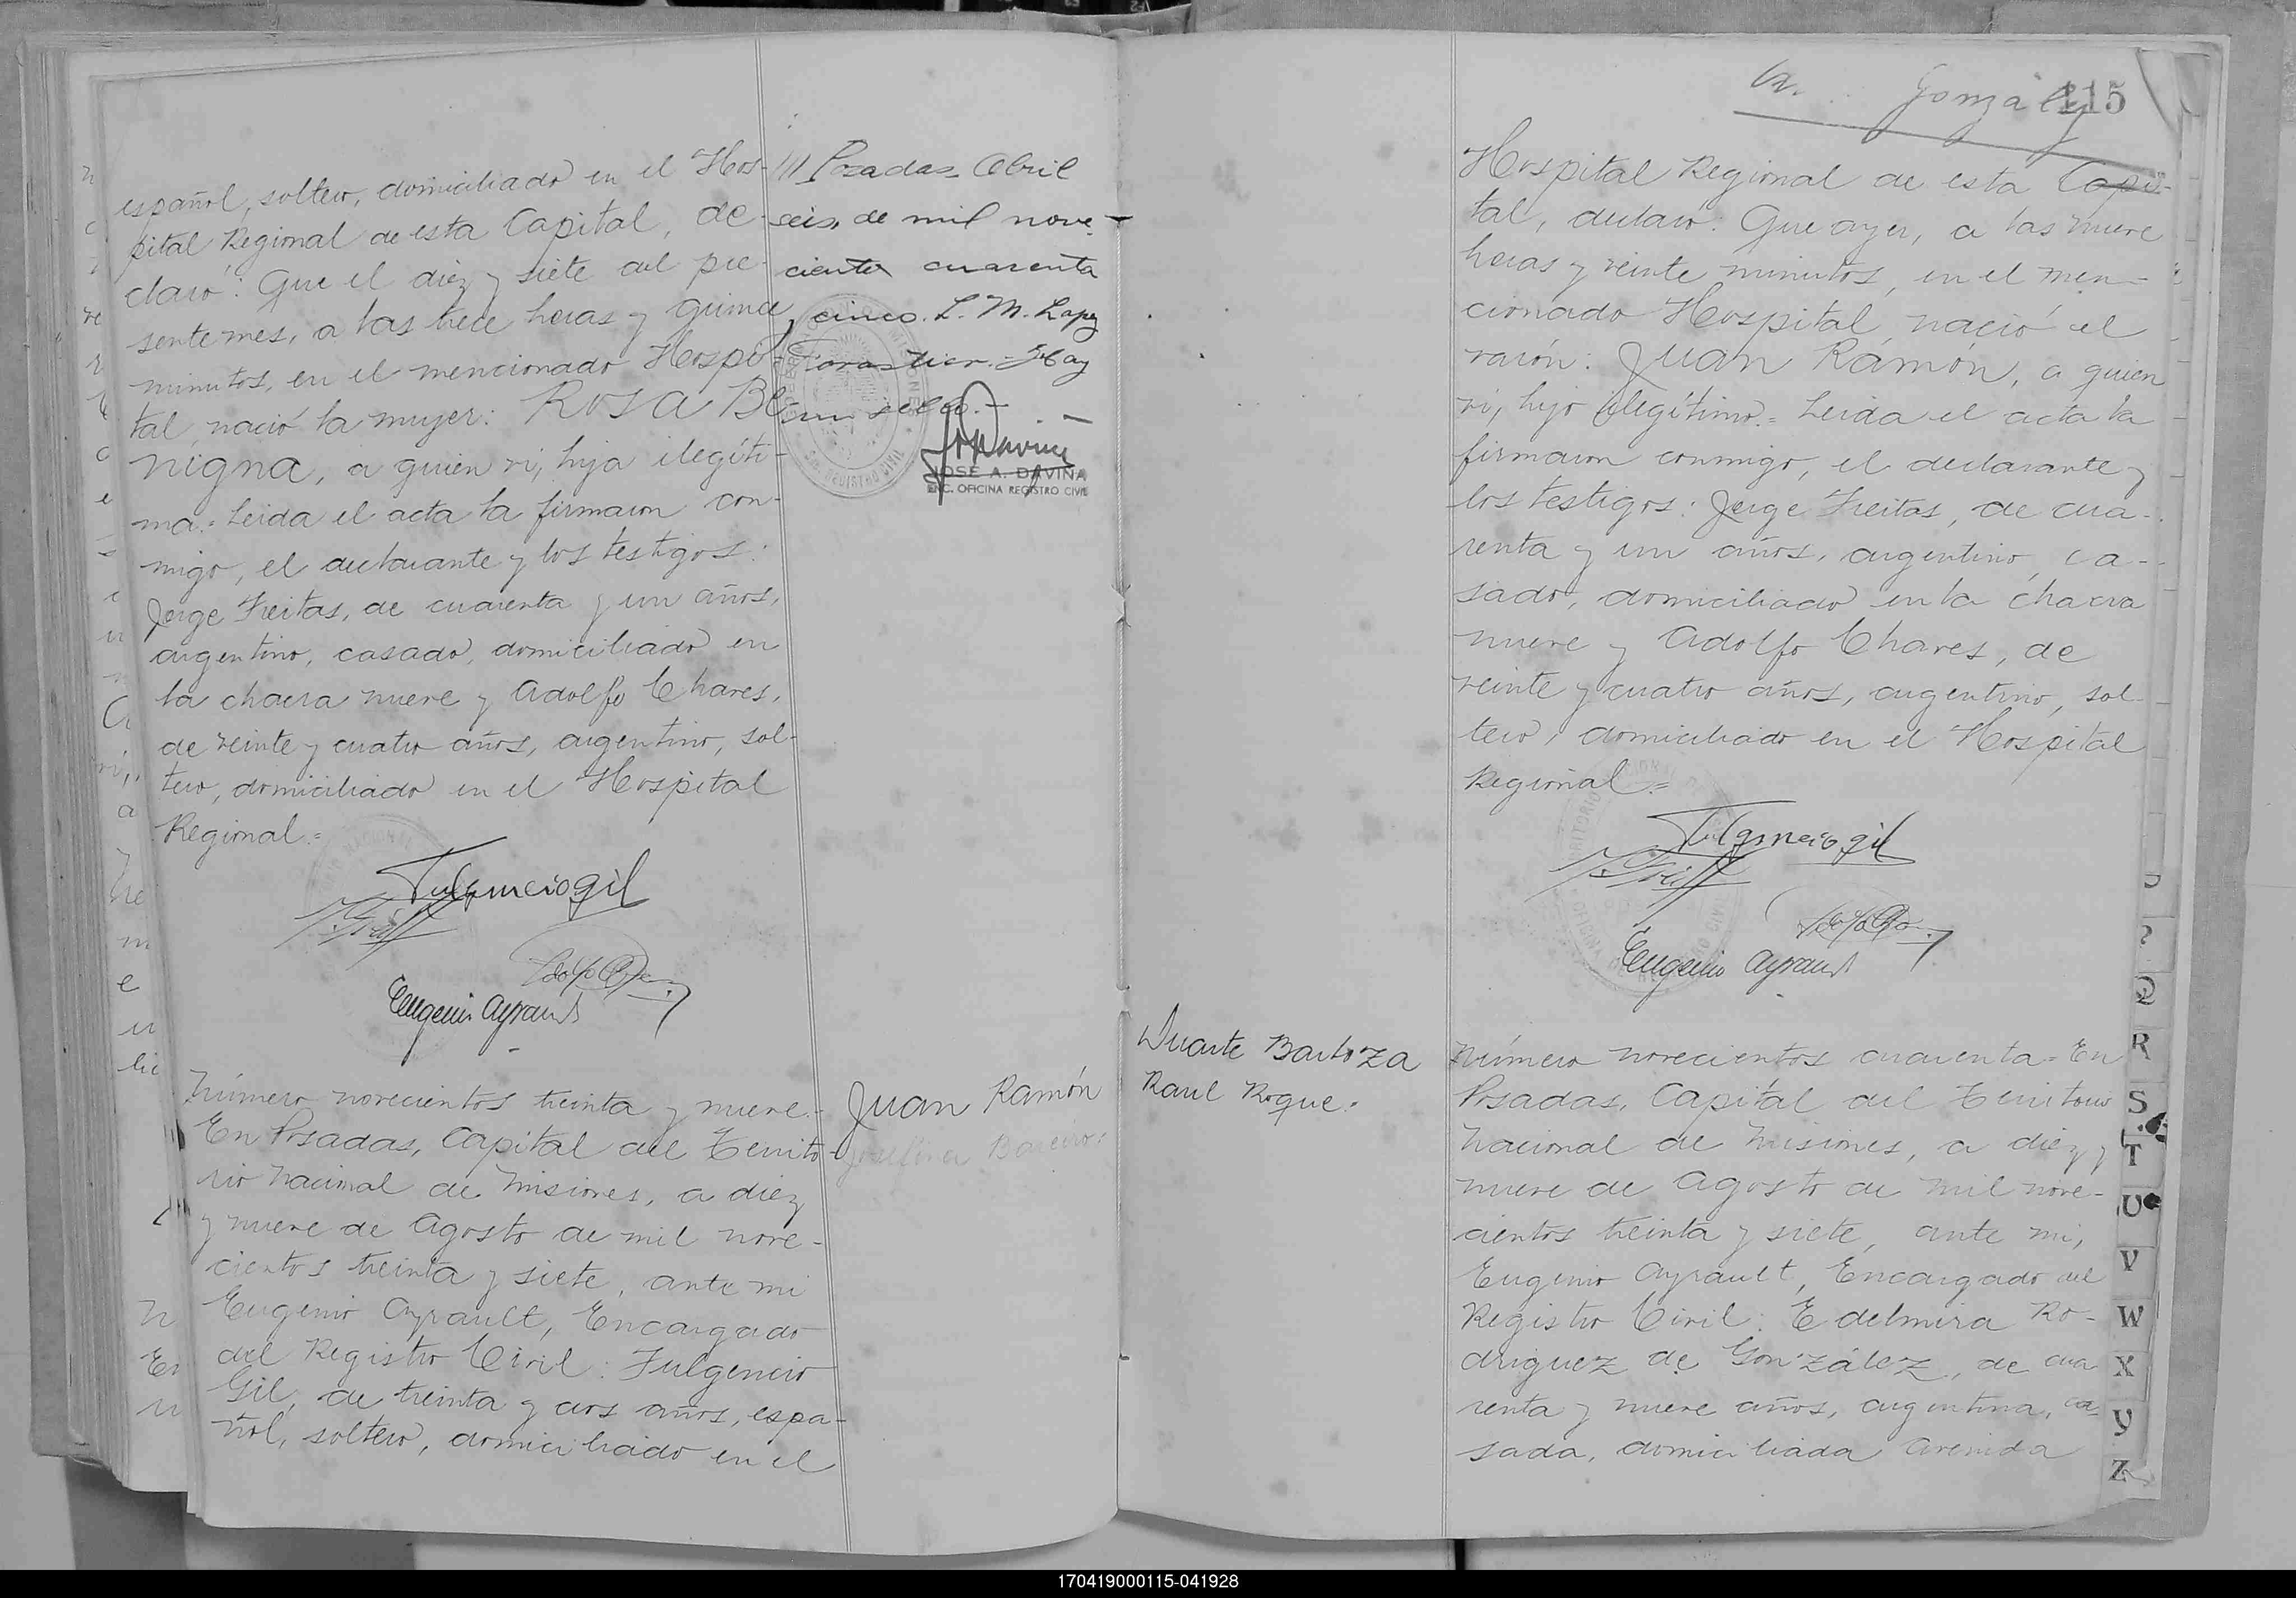 español, soltero, domiciliado en el Hos-
pital Regional de esta Capital, de-
claró: Que el diez y siete del pre-
sente mes, a las trece horas y quince
minutos, en el mencionado Hospi-
tal, nació la mujer: Rosa Be-
nigna, a quien vi, hija ilegíti-
ma.= Leida el acta la firmaron con-
migo, el declarante y los testigos:
Jorge Freitas, de cuarenta y un años,
argentino, casado, domiciliado en
la chacra nueve y Adolfo Chaves,
de veinte y cuatro años, argentino, sol-
tero, domiciliado en el Hospital
Regional.=
Fulgencio gil
Eugenio Ayrault
/// Posadas Abril
seis, de mil nove-
cientos cuarenta
y cinco. L. M. Lopez
Forastier. Hay
un sello.-
JOSÉ A. DAVIÑA
ENC. OFICINA REGISTRO CIVIL
Número novecientos treinta y nueve.-
En Posadas, Capital del Territo-
rio Nacional de Misiones, a diez
y nueve de Agosto de mil nove-
cientos treinta y siete, ante mi
Eugenio Ayrault, Encargado
del Registro Civil: Fulgencio
Gil, de treinta y dos años, espa-
ñol, soltero, domiciliado en el
Juan Ramón
Josefina Bareiro:
Gonzalez
115
Hospital Regional de esta Capi-
tal, declaró: Que ayer, a las nueve
horas y veinte minutos, en el men-
cionado Hospital, nació el
varón: Juan Ramón, a quien
vi, hijo ilegítimo.= Leida el acta la
firmaron conmigo, el declarante y
los testigos: Jorge Freitas, de cua-
renta y un años, argentino, ca-
sado, domiciliado en la chacra
nueve y Adolfo Chaves, de
veinte y cuatro años, argentino, sol-
tero, domiciliado en el Hospital
Regional.=
Fulgencio gil
Eugenio Ayrault
Duarte Barboza
Raul Roque.
Número novecientos cuarenta= En
Posadas, Capital del Territorio
Nacional de Misiones, a diez y
nueve de Agosto de mil nove-
cientos treinta y siete, ante mi,
Eugenio Ayrault, Encargado del
Registro Civil: Edelmira Ro-
driguez de González, de cua
renta y nueve años, argentina, ca-
sada, domiciliada Avenida
Q
R
S
T
U
V
W
X
Y
Z
170419000115-041928